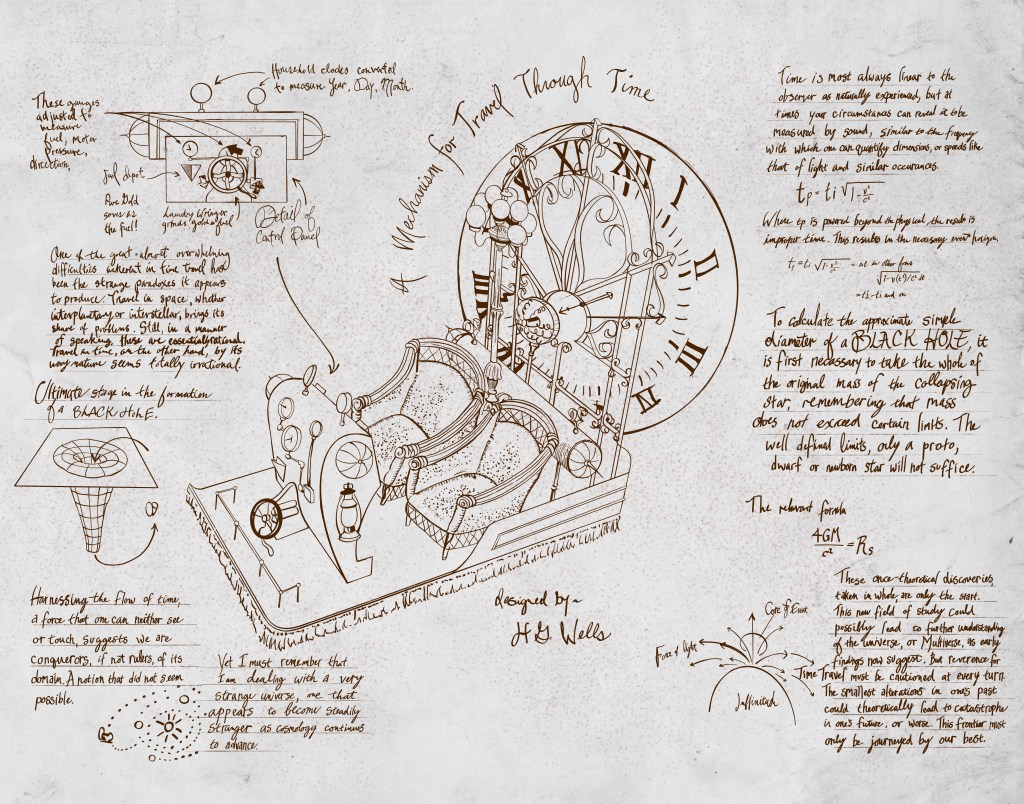 Household clocks converted
to measure Year, Day, Month.
These gauges
adjusted to
measure
fuel, motor
pressure,
direction,
fuel depot
Pure Gold
serves as
the fuel!
Laundry Wringer
grinds gold to fuel
Detail of
Control Panel
A Mechanism for Travel Through Time
XI
XII
I
II
III
IV
One of the great almost overwhelming
difficulties inherent in time travel has
been the strange paradoxes it appears
to produce. Travel in space, whether
interplanetary or interstellar, brings its
share of problems. Still, in a manner
of speaking, these are essentially rational.
Travel in time, on the other hand, by its
very nature seems totally irrational.
Ultimate stage in the formation
of a BLACK HOLE.
Harnessing the flow of time,
a force that one can neither see
or touch, suggests we are
conquerors, if not rulers, of its
domain. A notion that did not seem
possible.
Yet I must remember that
I am dealing with a very
strange universe, one that
appears to become steadily
stranger as cosmology continues
to advance.
designed by~
HG Wells
Time is most always linear to the
observer as naturally experienced, but at
times your circumstances can reveal it to be
measured by sound, similar to the frequency
with which one can quantify dimensions, or speeds like
that of light and similar occurances.
tp = ti √1 - v²/c²
Where tp is powered beyond the physical, the result is
improper time. This results in the necessary event horizon.
To calculate the approximate simple
diameter of a BLACK HOLE, it
is first necessary to take the whole of
the original mass of the collapsing
star, remembering that mass
does not exceed certain limits. The
well defined limits, only a proto,
dwarf or newborn star will not suffice.
The relevant formula
4GM/c² = Rs
These once-theoretical discoveries,
taken in whole, are only the start.
This new field of study could
possibly lead to further understanding
of the universe, or Multiverse, as early
findings now suggest. But reverence for
Time Travel must be cautioned at every turn.
The smallest alterations in one's past
could theoretically lead to catastrophe
in one's future, or worse. This frontier must
only be journeyed by our best.
Core of Event
Force of light